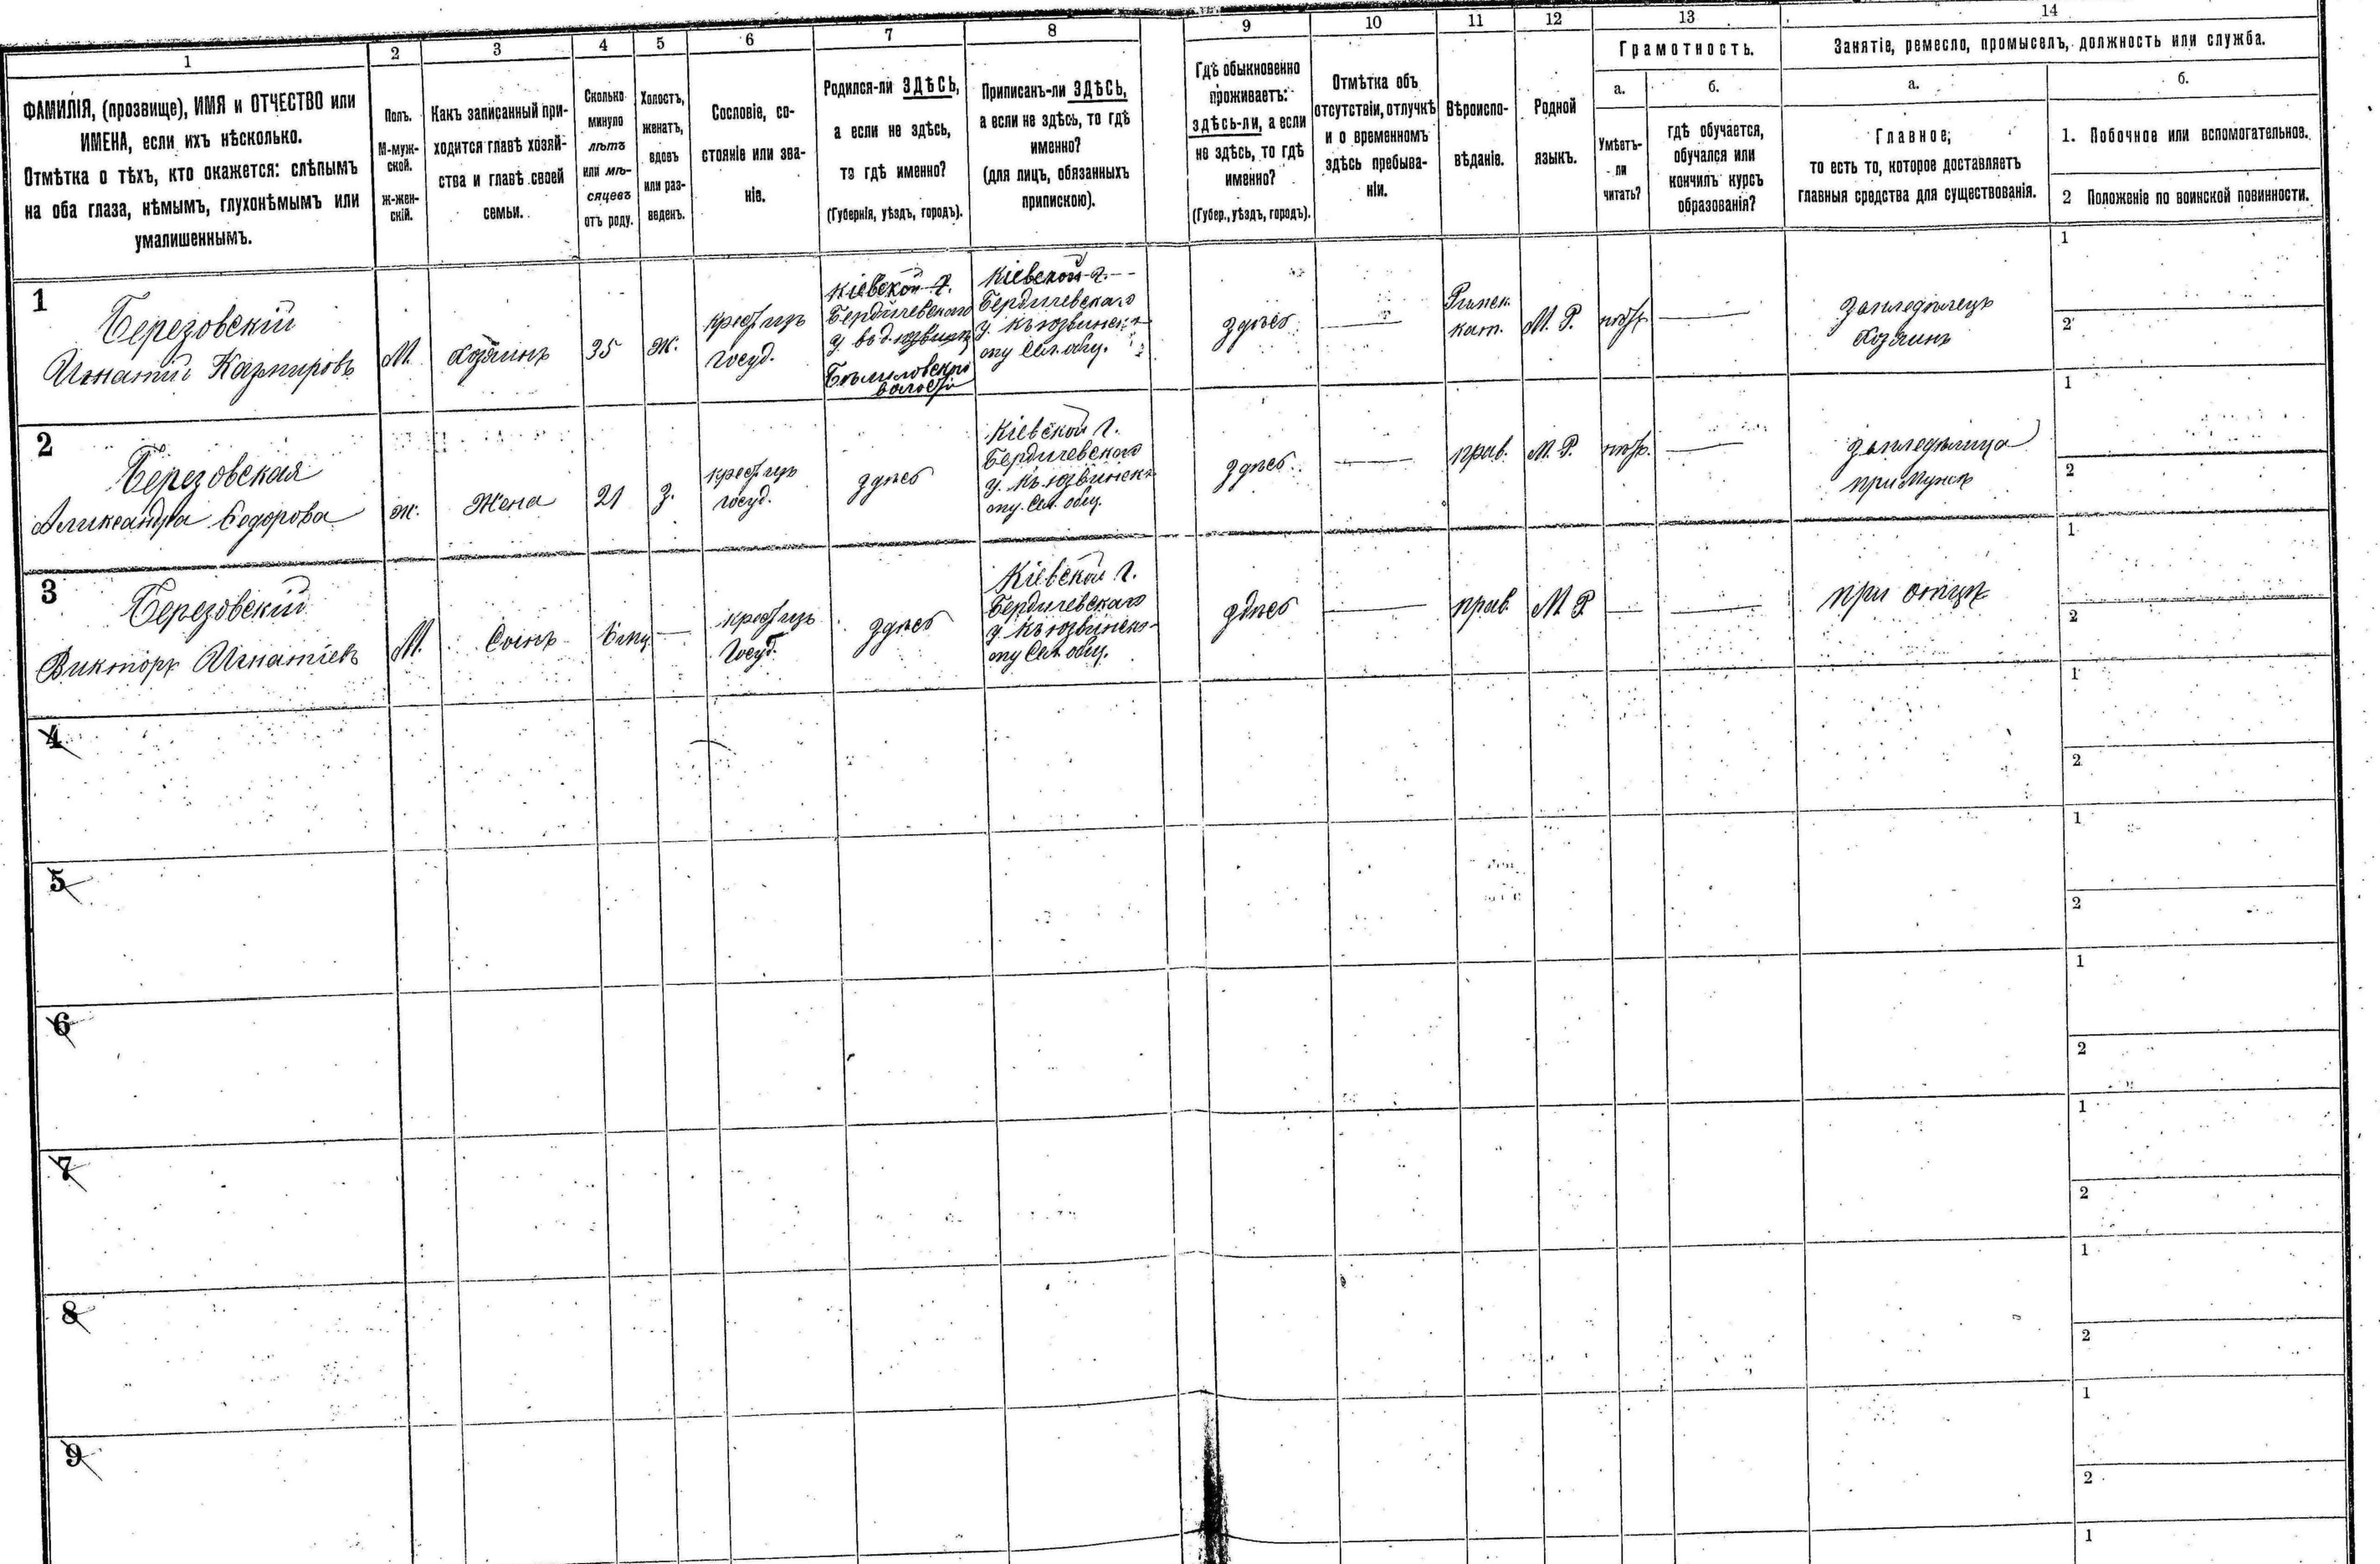 1
2
3
4
5
6
7
8
9
10
11
12
13
14
ФАМИЛІЯ, (прозвище), ИМЯ и ОТЧЕСТВО или
ИМЕНА, если ихъ нѣсколько.
Отмѣтка о тѣхъ, кто окажется: слѣпымъ
на оба глаза, нѣмымъ, глухонѣмымъ или
умалишеннымъ.
Полъ.
М-муж-
ской.
ж-жен-
скій.
Какъ записанный при-
ходится главѣ хозяй-
ства и главѣ своей
семьи.
Сколько
минуло
лѣтъ
или мѣ-
сяцевъ
отъ роду.
Холостъ,
женатъ,
вдовъ
или раз-
веденъ.
Сословіе, со-
стояніе или зва-
ніе.
Родился-ли ЗДѢСЬ,
а если не здѣсь,
то гдѣ именно?
(Губернія, уѣздъ, городъ).
Приписанъ-ли ЗДѢСЬ,
а если не здѣсь, то гдѣ
именно?
(для лицъ, обязанныхъ
припискою).
Гдѣ обыкновенно
проживаетъ:
здѣсь-ли, а если
не здѣсь, то гдѣ
именно?
(Губер., уѣздъ, городъ).
Отмѣтка объ
отсутствіи, отлучкѣ
и о временномъ
здѣсь пребыва-
ніи.
Вѣроиспо-
вѣданіе.
Родной
языкъ.
Грамотность.
а.
Умѣетъ-
ли
читать?
б.
гдѣ обучается,
обучался или
кончилъ курсъ
образованія?
Занятіе, ремесло, промыселъ, должность или служба.
а.
Главное,
то есть то, которое доставляетъ
главныя средства для существованія.
б.
1. Побочное или вспомогательное.
2 Положеніе по воинской повинности.
1
Березовскій
Игнатій Каспировъ
М.
Хозяинъ
35
Ж.
крест. изъ
госуд.
Кіевской г.
Бердичевскаго
у.
Бѣлиловской
волости
Кіевской г.
Бердичевскаго
у. къ юзвинско-
му Сел. общ.
здѣсь
Римск.
кат.
М. Р.
нѣтъ
земледѣлецъ
Хозяинъ
1
2
2
Березовская
Александра Федорова
ж.
Жена
21
З.
крест. изъ
госуд.
здѣсь
Кіевской г.
Бердичевского
у. къ юзвинско-
му. Сел. общ.
здѣсь
прав.
М. Р.
нѣтъ.
земледѣлица
при мужѣ
1
2
3
Березовскій
Викторъ Игнатіевъ
М.
Сынъ
6 мц.
крест. изъ
Госуд.
здѣсь
Кіевской г.
Бердичевскаго
у. къ юзвинско-
му Сел. общ.
здѣсь
прав.
М Р
при отцѣ
1
2
4
1
2
5
1
2
6
1
2
7
1
2
8
1
2
9
1
2
1